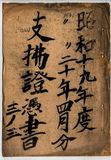 昭和十九年度
〃二十年四月分
支拂證憑書
三ノ三